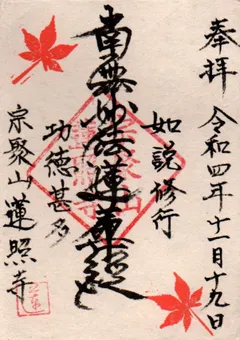 奉拝
令和四年十一月十九日
如説修行
南無妙法蓮華経
功徳甚多
宗聚山蓮照寺
宗聚山
蓮照寺